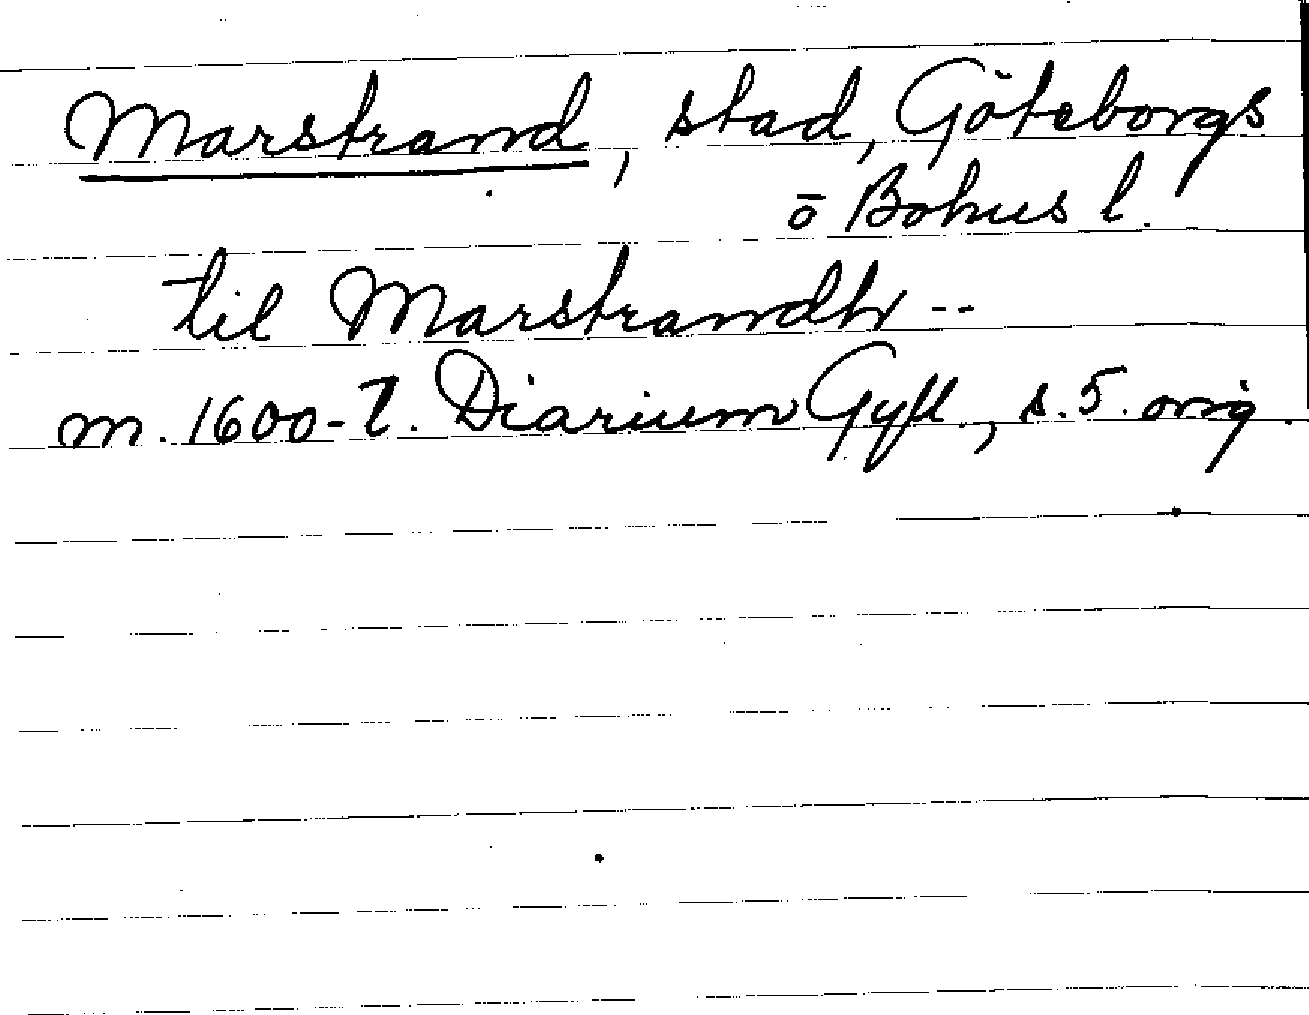 Marstrand, stad, Göteborgs
ō Bohus l.
til Marstrandh --
m. 1600-t. Diarium Gyll., s. 5. orig.